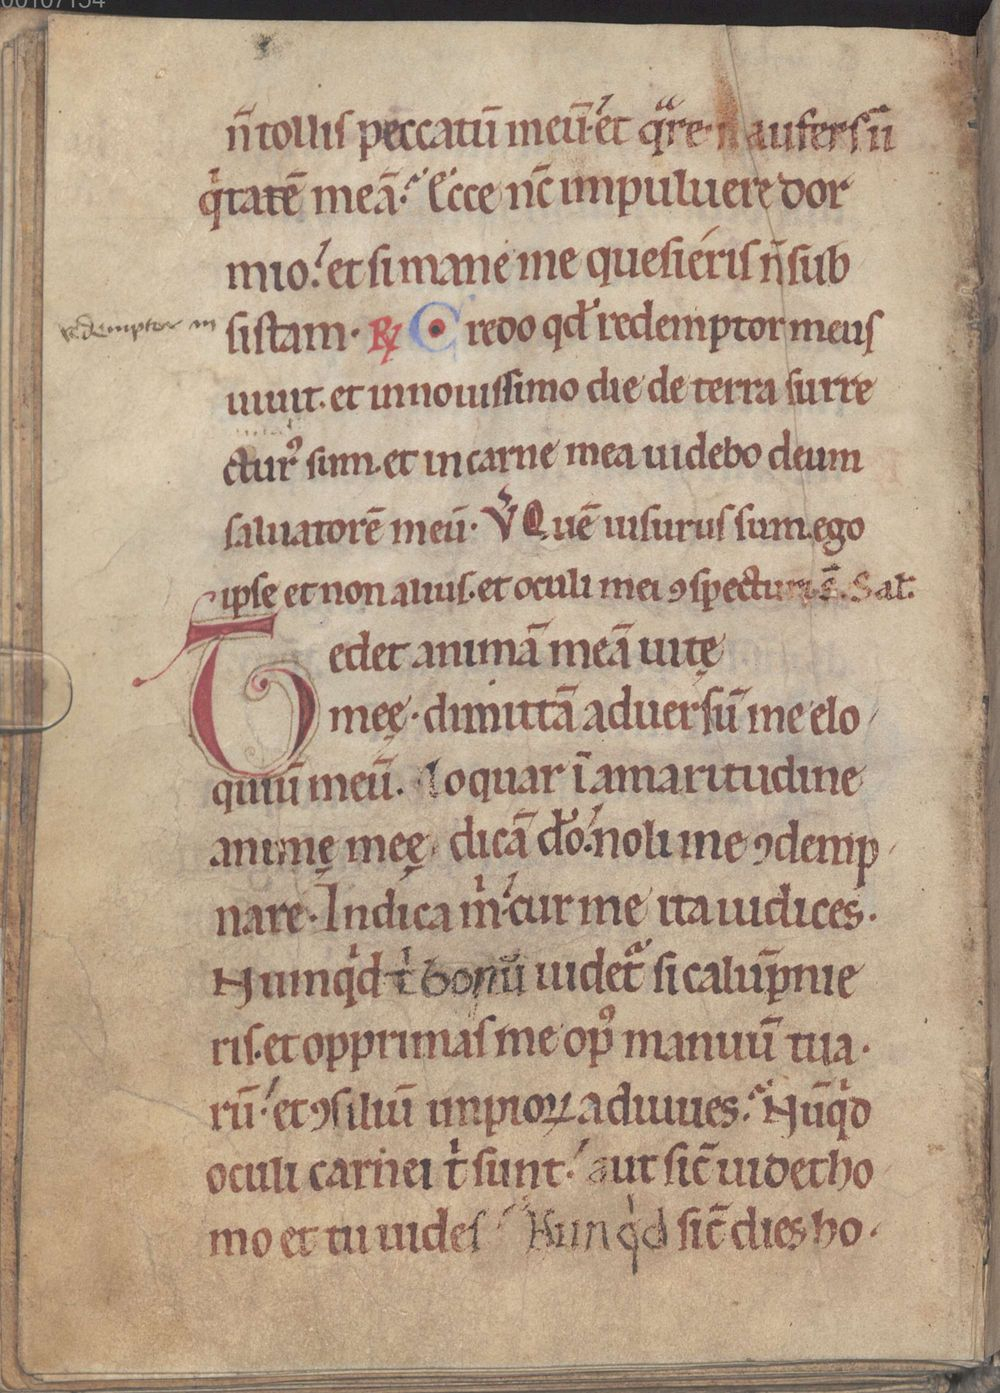 00107154
n̄ tollis peccatū meū· et qᷓre n̄ aufers īī
qͥtatē meā· Ecce nc̄ impuluere dor
mio· et si mane me quesiéris n̄ sub
redemptor m sistam· R℣ Credo qđ redemptor meus
uiuit· et innouissimo die de terra surre
cturꝰ sum· et in carne mea uidebo deum
saluatorē meū· V̾ Quē uisurus sum· ego
ipse et non alius· et oculi mei ꝯspecturi s̄· Sal̄·
Tedet animā meā uitę
meę· dimittā aduersū me elo
quiū meū· loquar ī amaritudine
animę meę· dicā đo· noli me ꝯdemp
nare· Indica m̍· cur me ita iudices·
Nunqͥd tͥ bonū uidet᷑ si calūpnie
ris· et opprimas me opꝰ manuū tua·
rū· et ꝯsiliū impioꝝ adiuues· Nūqͥd
oculi carnei tͥ sunt· aut sic̄ uidet ho
mo et tu uides Nunqͥd sic̄ dies ho·